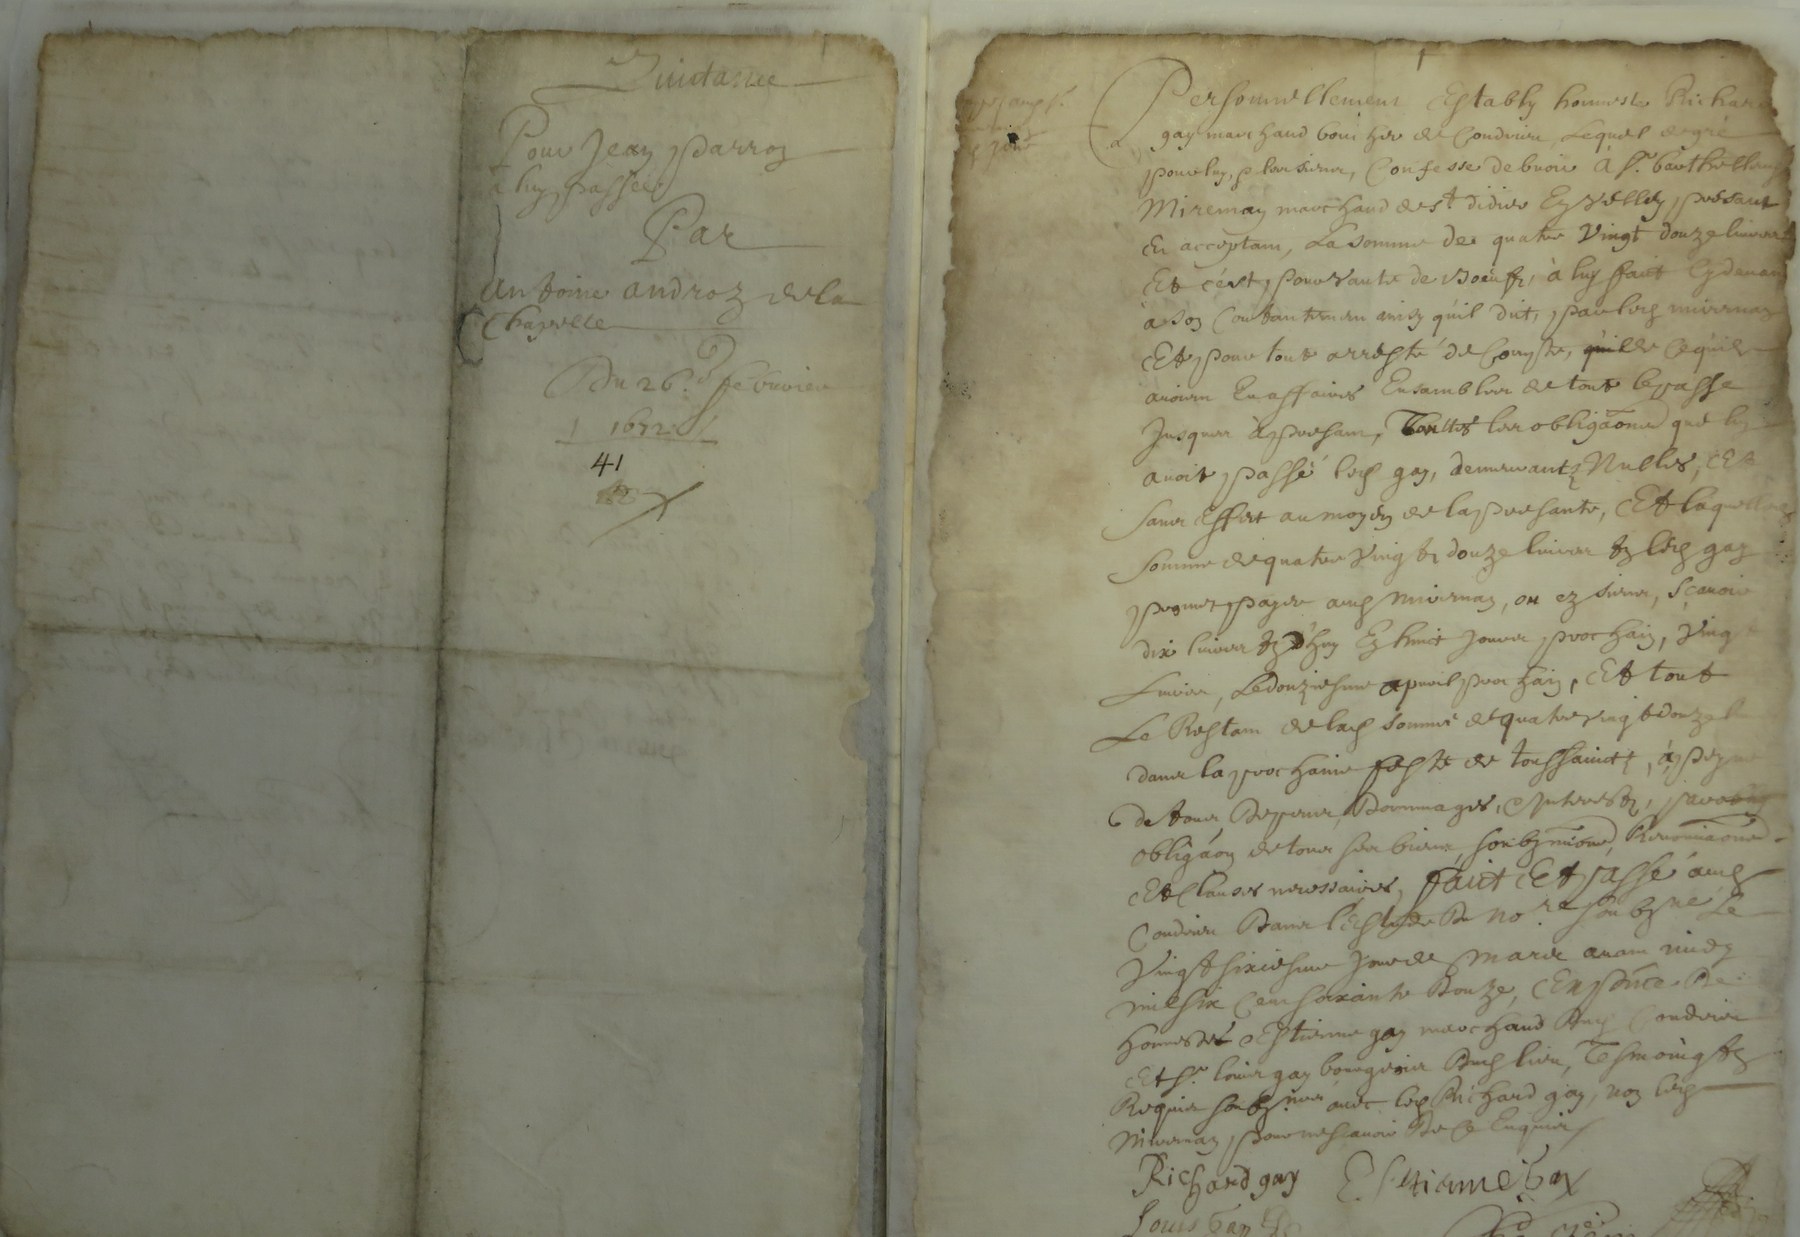 Quictance
Pour Jean parroz
a luy passée
Par
Antoine androz de la
Chapelle
Du 26e febvrier
1672
41
Personnellement Estably honneste Richard
gay marchand boucher de Condrieu Lequel de gré
pour luy, & les siens, Confesse debvoir à Sr barthellemy
marchand de st didier En Velley, present
Et acceptant, La somme de quatre Vingt douze livres
Et c'est pour vante de boeufz, à luy faict
à son Contantemen ainsy qu'il dit, par led mivernay
Et pour tout arresté de Compte, de ce qu'ilz
avoient En affaires Ensambles de tout le passe
Jusques à present, Touttes les obligãons que luy
avoit passé led gay, demeurantz Nulles, Et
sans Effect au moyen de la presante, Et laquelle
somme de quatre Vingtz douze livres tz led gay
promet payer aud mivernay, ou ez siens, sçavoir
dix livres tz d'huy En huict Jours prochain, Vingt
Livres, Le douziesme apvril prochain, Et tout
Le Restant de lad somme de quatre vingt douze l
dans la prochaine feste de toussainctz, à peyne
de tous Despens, Dommages, Interestz, par
obligãon de tous ses biens soubzmiõns, Renonciaõns
Et Clauses necessaires, faict Et passé aud
Condrieu Dans l'Estude Du nore soubzne Le
Vingt sixiesme Jour de Mars avant midy
mil six Cens soixante Douze, En pñce De
honnestes Estienne gay marchand Dud Condrieu
Et Sr louis gay bourgeois Dud lieu, Tesmoingtz
Requis soubznes avec led Richard gay, non led
Mivernay pour ne sçavoir De Ce Enquis
Richard gay Estienne Gay
Louis Gay